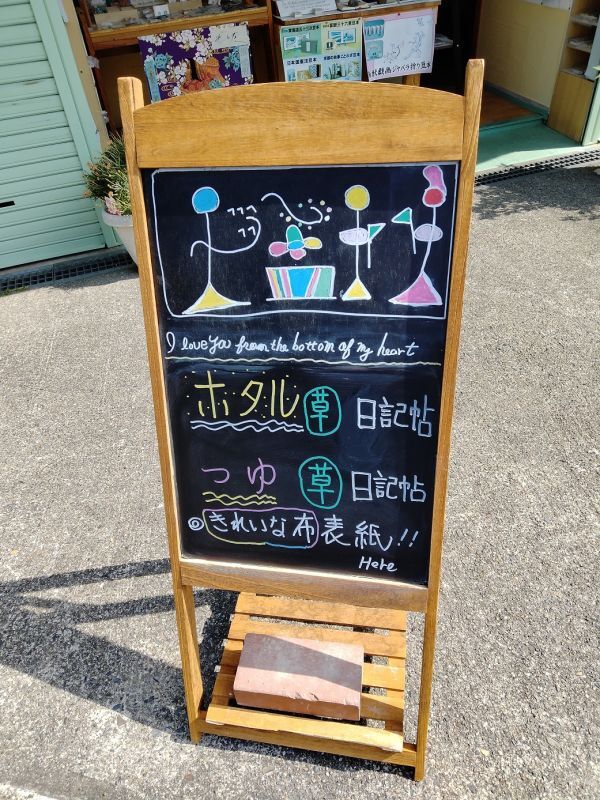 I love you from the bottom of my heart
ホタル草 日記帖
つゆ草 日記帖
◎きれいな布表紙!!
Here